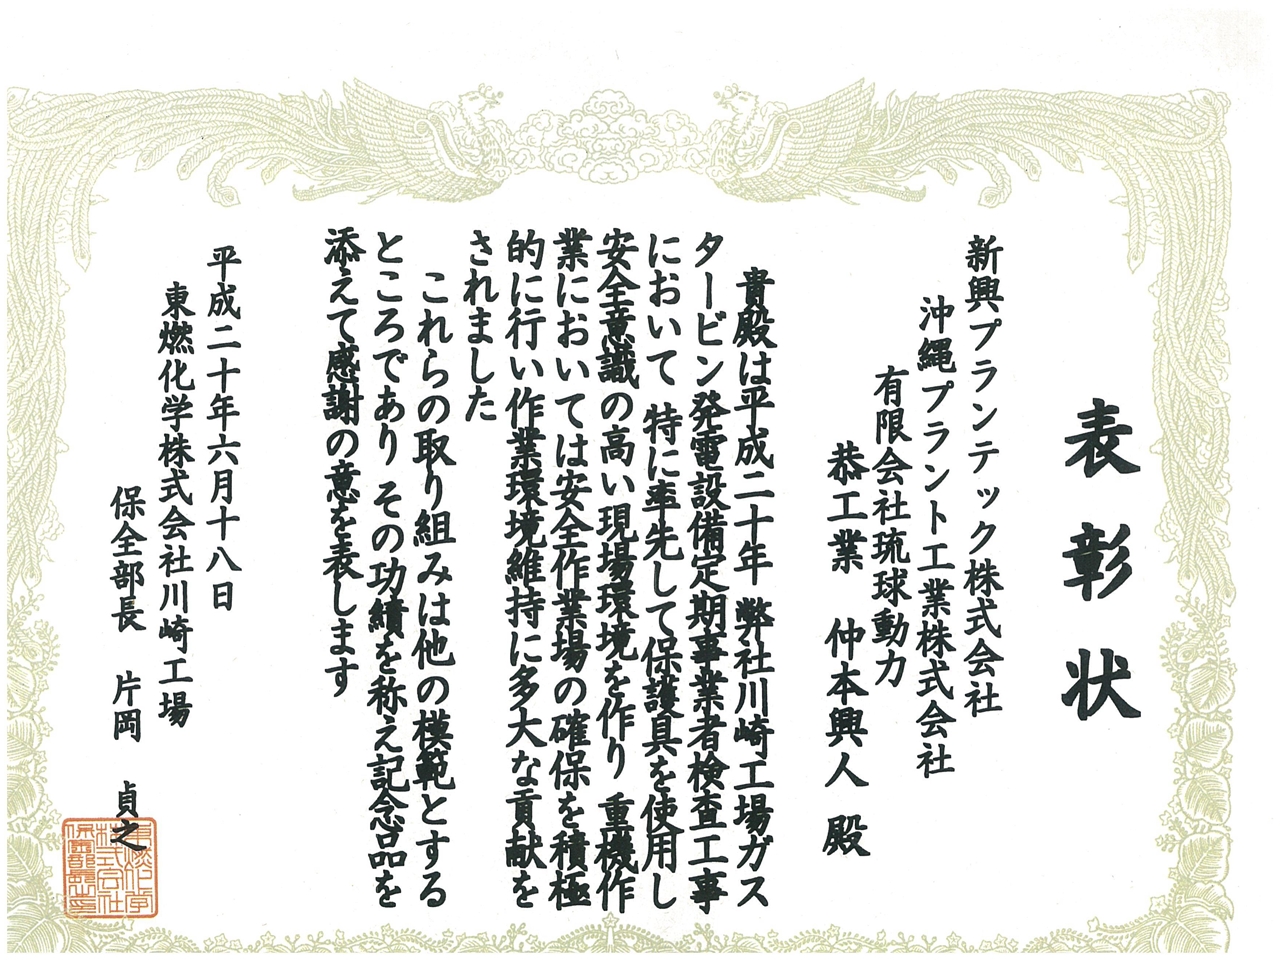 表彰状
新興プランテック株式会社
沖縄プラント工業株式会社
有限会社琉球動力
恭工業　仲本興人 殿
貴殿は平成二十年 弊社川崎工場ガス
タービン発電設備定期事業者検査工事
において 特に率先して保護具を使用し
安全意識の高い現場環境を作り 重機作
業においては安全作業場の確保を積極
的に行い作業環境維持に多大な貢献を
されました
これらの取り組みは他の模範とする
ところであり その功績を称え記念品を
添えて感謝の意を表します
平成二十年六月十八日
東燃化学株式会社川崎工場
保全部長　片岡　貞之
東燃化学
株式会社